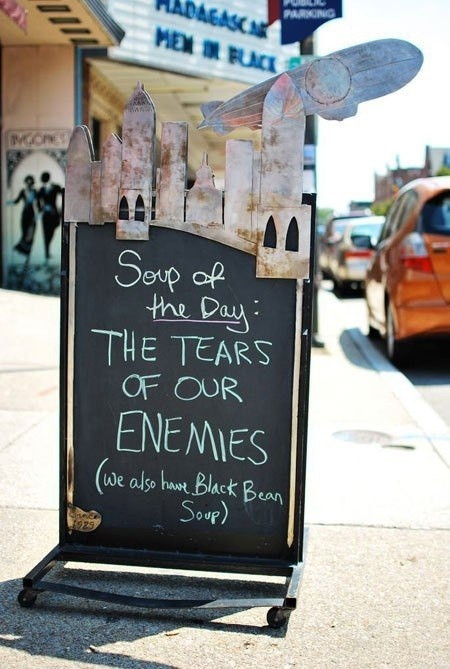 MADAGASCAR
MEN IN BLACK
PUBLIC
PARKING
BYGONES
Soup of
the Day:
THE TEARS
OF OUR
ENEMIES
(we also have Black Bean
Soup)